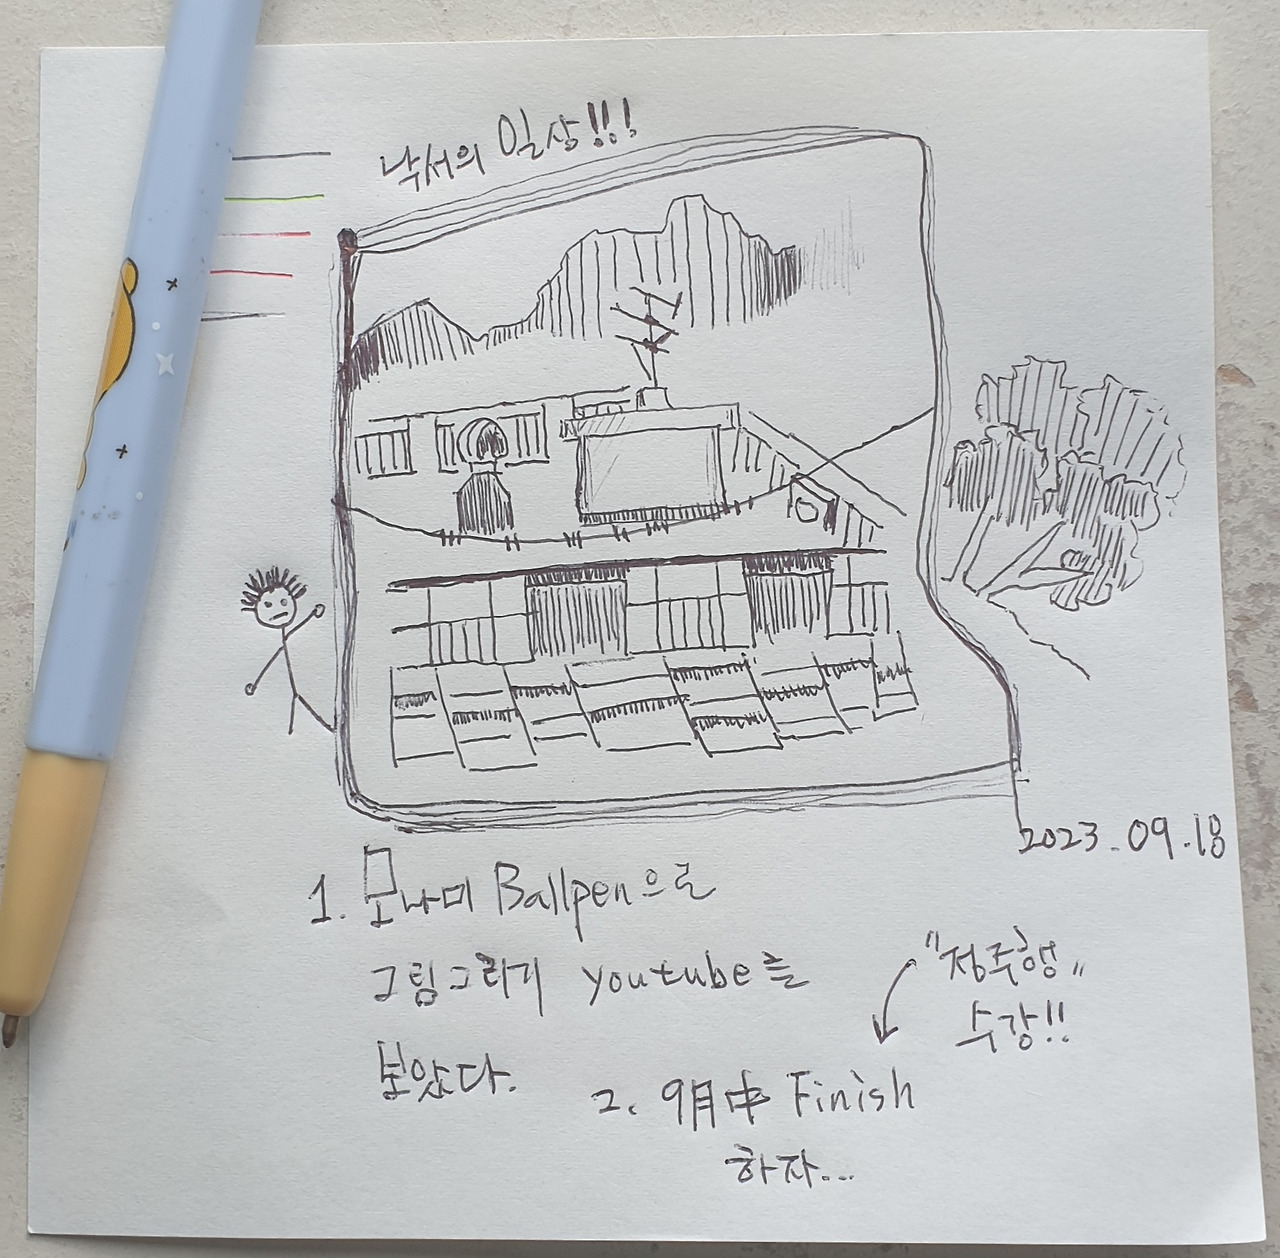 낙서의 일상!!!
2023.09.18
1. 모나미 Ballpen으로
그림그리기 youtube를
보았다.
"정주행"
수강!!
2. 9月中 Finish
하자...